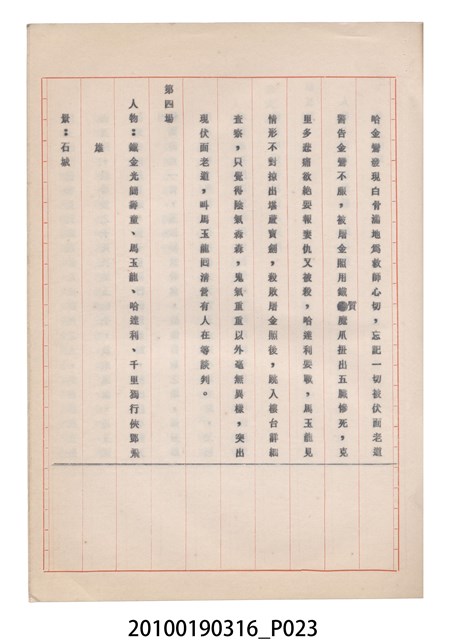 哈金鶯發現白骨滿地為救師心切，忘記一切被伏面老道
警告金鶯不服，被屠金照用鐵質魔爪扯出五臟慘死，克
里多悲痛欲絕要報妻仇又被殺，哈達利要戰，馬玉龍見
情形不對掠出湛盧寶劍，殺敗屠金照後，跳入樓台詳細
查察，只覺得陰氣森森，鬼氣重重以外毫無異樣，突出
現伏面老道，叫馬玉龍回清營有人在等談判。
第四場
人物：鐵金光闢壽童、馬玉龍、哈達利、千里獨行俠鄧飛
雄
景：石城
20100190316_P023